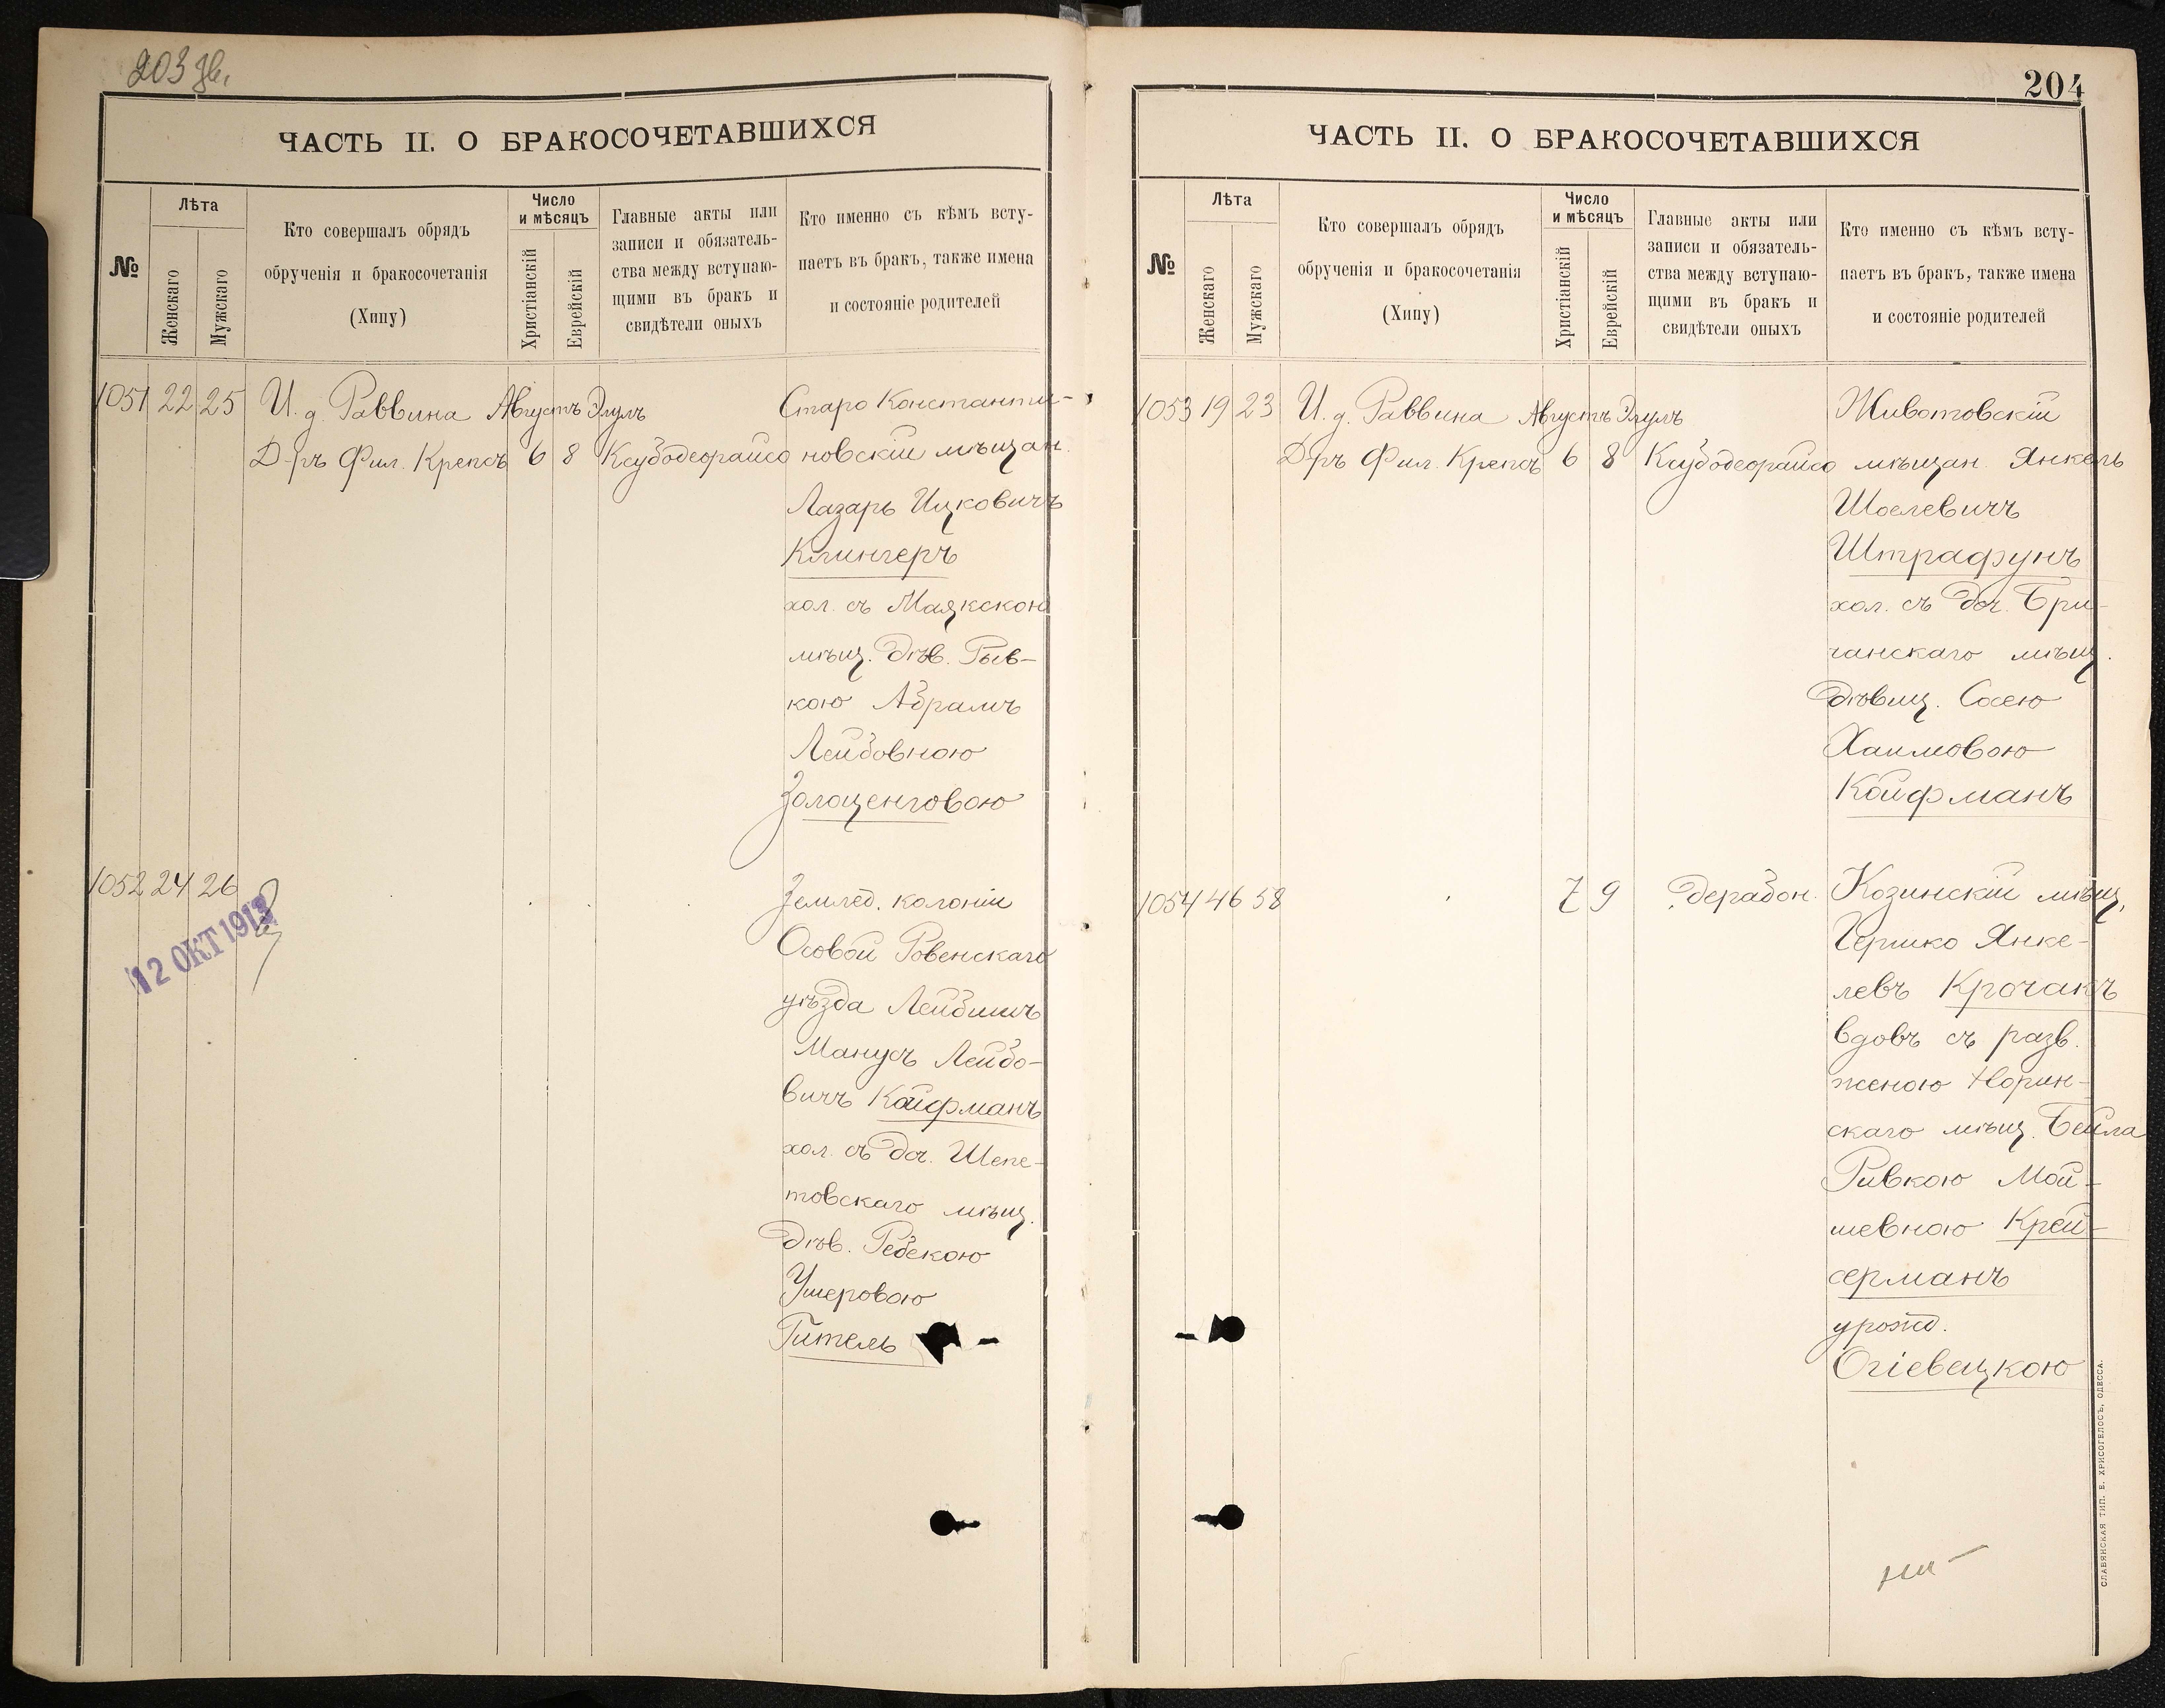 203 зв.
ЧАСТЬ II. О БРАКОСОЧЕТАВШИХСЯ
№
Лѣта
Женскаго
Мужскаго
Кто совершалъ обрядъ
обрученія и бракосочетанія
(Хипу)
Число
и мѣсяцъ
Христіанскій
Еврейскій
Главные акты или
записи и обязатель-
ства между вступаю-
щими въ бракъ и
свидѣтели оныхъ
Кто именно съ кѣмъ всту-
паетъ въ бракъ, также имена
и состояніе родителей
1051 22 25 И. д. Раввина Августъ Элулъ Старо Константи-
Д-ръ Фил. Крепсъ 6 8 Ксубодеорайсо новскій мѣщан.
Лазарь Ицковичъ
Клингеръ
хол. съ Маякскою
мѣщ. дѣв. Рыв-
кою Абрамъ
Лейбовною
Золоценговою
1052 24 26 Землед. колоніи
12 ОКТ 1913
Осовой Ровенскаго
уѣзда Лейбишъ
Манусъ Лейбо-
вичъ Койфманъ
хол. съ доч. Шепе-
товскаго мѣщ.
дѣв. Ребекою
Ушеровою
Гитель
204
ЧАСТЬ II. О БРАКОСОЧЕТАВШИХСЯ
№
Лѣта
Женскаго
Мужскаго
Кто совершалъ обрядъ
обрученія и бракосочетанія
(Хипу)
Число
и мѣсяцъ
Христіанскій
Еврейскій
Главные акты или
записи и обязатель-
ства между вступаю-
щими въ бракъ и
свидѣтели оныхъ
Кто именно съ кѣмъ всту-
паетъ въ бракъ, также имена
и состояніе родителей
1053 19 23 И. д. Раввина Августъ Элулъ Животовскій
Д-ръ Фил. Крепсъ 6 8 Ксубодеорайсо мѣщан. Янкель
Шоелевичъ
Штрафунъ
хол. съ доч. Бри-
чанскаго мѣщ.
дѣвиц. Сосею
Хаимовою
Койфманъ
1054 46 58 7 9 дерабон. Козинскій мѣщ.
Гершко Янке-
левъ Крочакъ
вдовъ съ разв.
женою Норин-
скаго мѣщ. Бейла
Ривкою Мой-
шевною Крей-
серманъ
урожд.
Огіевецкою
СЛАВЯНСКАЯ ТИП. Е. ХРИСОГЕЛОСЪ, ОДЕССА.